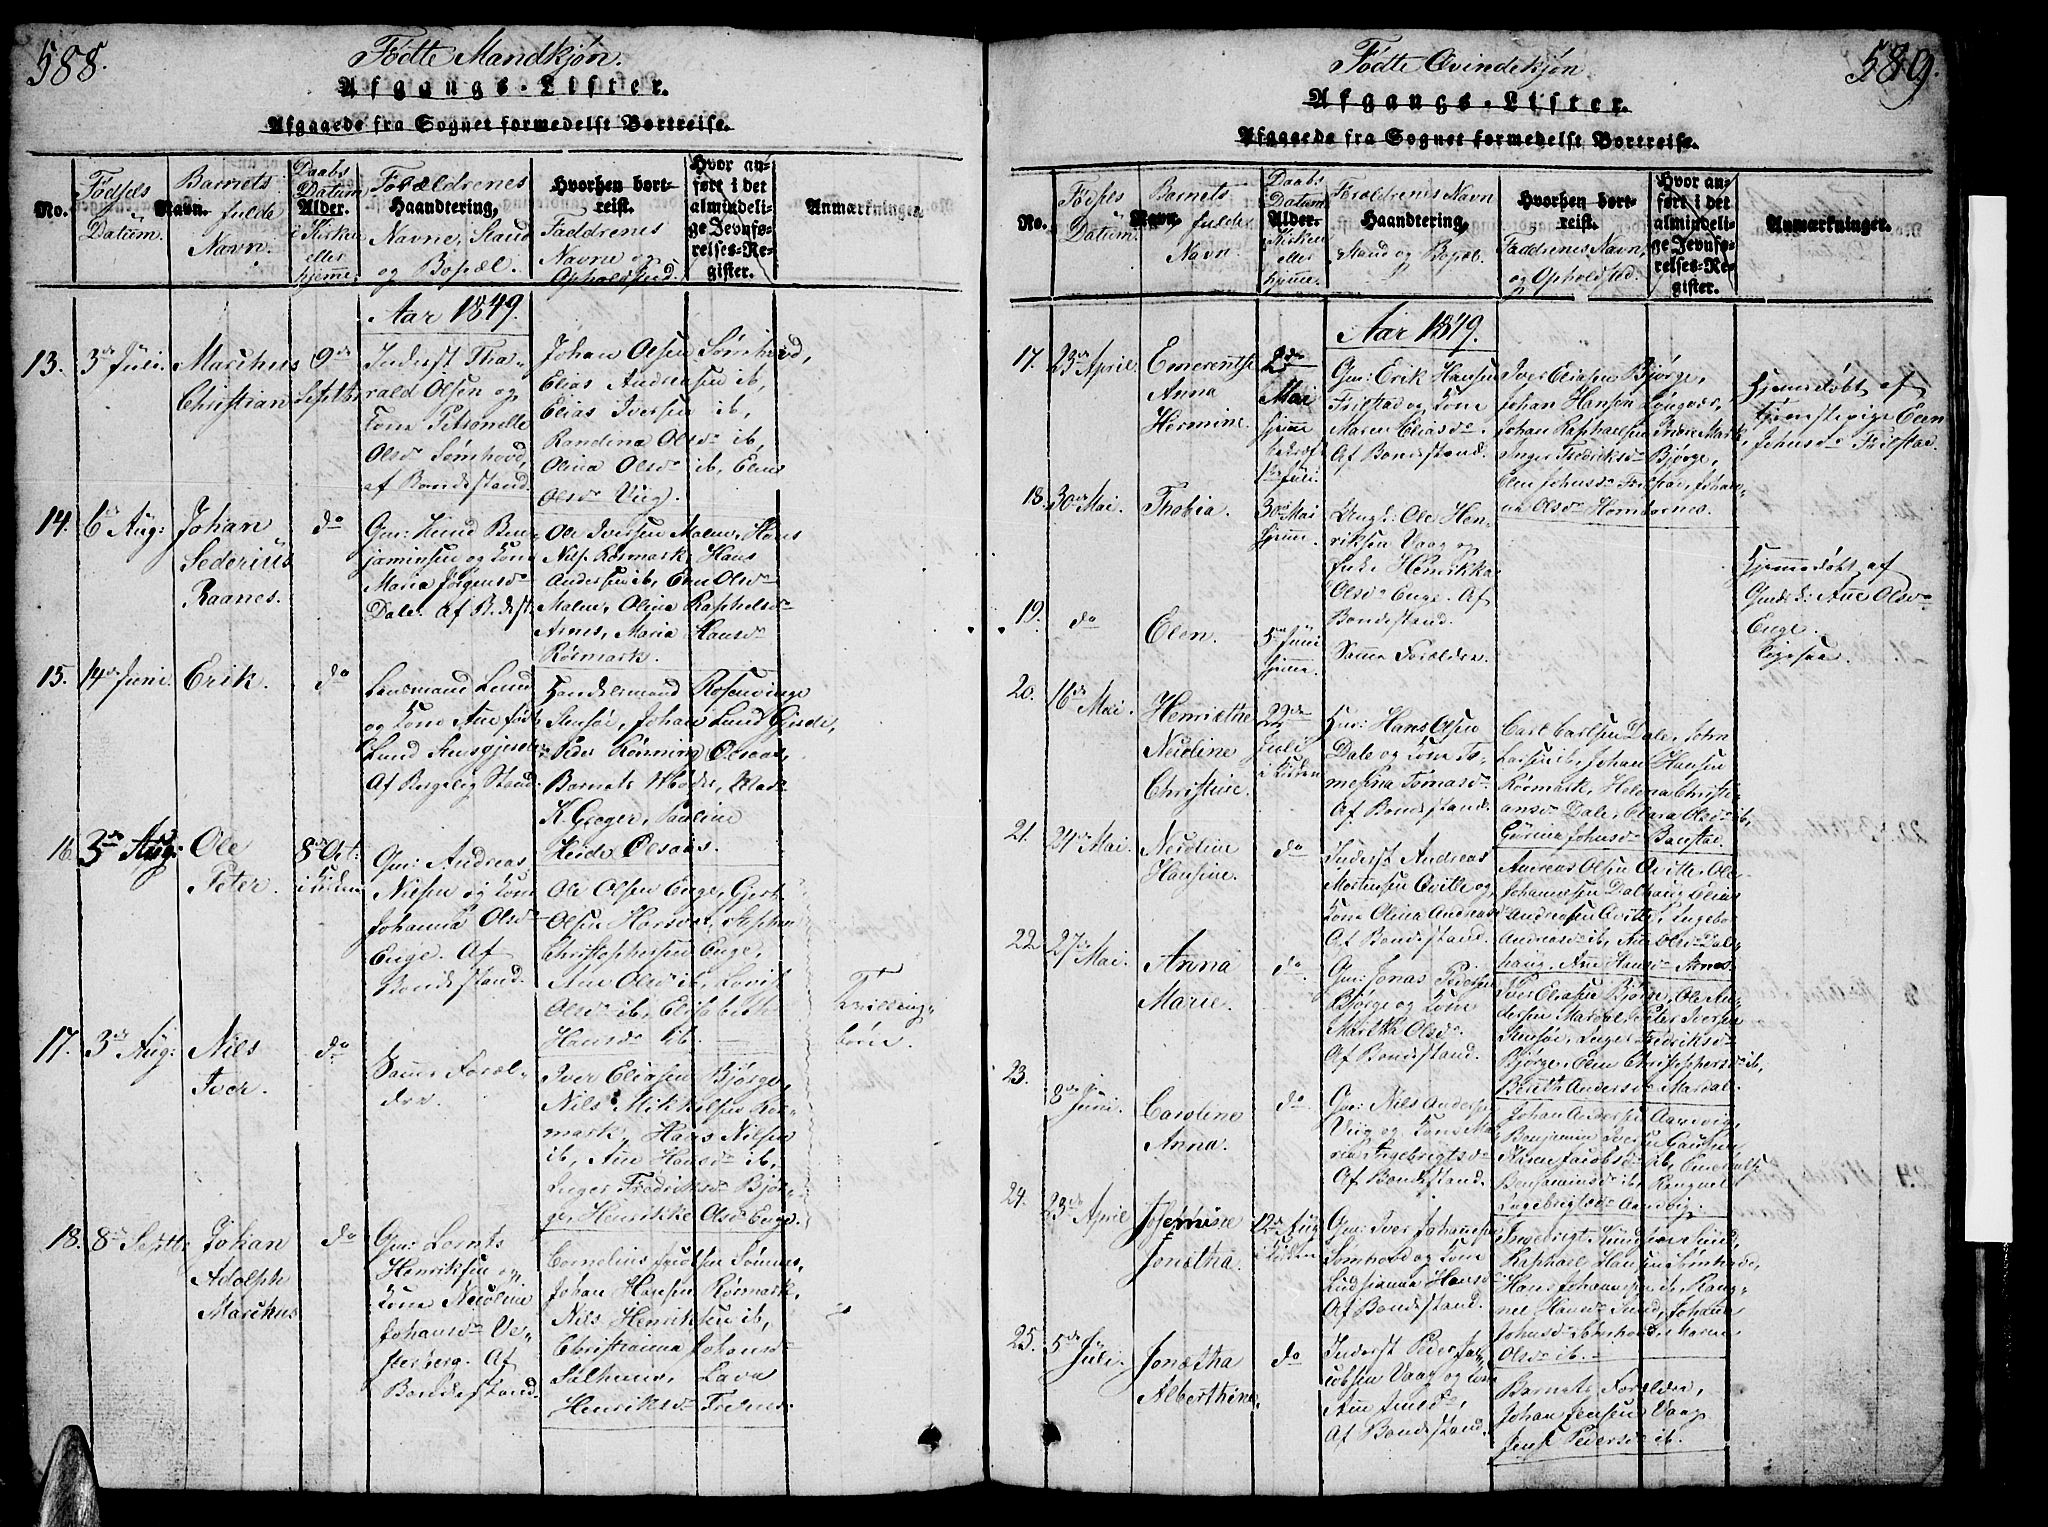 588.
Fødte Mandkjøn.
Afgangs-Lister.
Afgaaede fra Sognet formedelst Bortreise.
No.
Fødsels
Datum.
Barnets
Navn. fulde
Navn.
Daabs
Datum
Alder.
i Kirken
eller
hjemme.
Forældrenes
Haandtering,
Navne, Stand
og Bopæl.
Hvorhen bort-
reist.
Faddrenes
Navne og
Opholdsted.
Hvor an-
ført i det
almindeli-
ge Jevnfø-
relses-Re-
gister.
Anmærkninger.
Aar 1849.
13. 3de Juli. Marchus
Christian
9de
Septbr
Inderst Tha-
rald Olsen og
Kone Petronelle
Olsd. Sømhovd,
af Bondestand.
Johan Olsen Sømhovd,
Elias Andreasen ib,
Elias Iversen ib,
Randina Olsd. ib,
Olina Olsd. ib, Elen
Olsd. Viig.
14. 6te Aug: Johan
Sederius
Raanes.
do
Gm: Knud Ben-
jaminsen og Kone
Maria Jørgensd.
Dale. Af B.dest.
Ole Iversen Malnes, Hans
Nils. Rørmark, Hans
Andersen ib, Elen Olsd.
Malnes, Olina Raphelsd.
Arnes, Maria Hansd.
Rørmark.
15. 14de Juni. Erik.
do
Lensmand Lund
og Kone Ane født
Lund
Af Borgelig Stand
Handelsmand Rosenvinge
Stensøe, Johan Lund Gjerde,
Peder Rønning Olsaas,
Barnets Moder, Mad.
K. Grøger, Pauline
Heide Olsaas.
16. 3de Aug: Ole
Peter.
8de Oct:
i Kirken
Gm: Andreas
Nielsen og Kone
Johanna Olsd.
Enge. Af
Bondestand.
Ole Olsen Enge, Gjert
Olsen Horsvet, Stephen
Christophersen Enge,
Ane Olsd. ib, Lovise
Olsd. ib, Elisabeth
Hansd. ib.
Tvilling-
børn.
17. 3de Aug: Nils
Iver.
do
Samme Foræl-
dre.
Iver Eliasen Bjørge,
Nils Mikkelsen Rør-
mark, Hans Nilsen
ib, Ane Hansd. ib,
Inger Fredriksd. Bjør-
ge, Henrikke Olsd. Enge.
18. 8de Septbr Johan
Adolph
Marchus
do
Gm: Lornts
Henriksen og
Kone Nicoline
Johansd. Ve-
sterberg. Af
Bondestand.
Cornelius
Johan Hansen Rørmark,
Nils Henriksen ib,
Christianna Johansd.
Salhuus, Lava
Henriksd. Trelnes.
589.
Fødte Qvindekjøn
Afgangs-Lister.
Afgaaede fra Sognet formedelst Bortreise.
No.
Fødsels
Datum.
Barnets
Navn. fulde
Navn.
Daabs
Datum
Alder.
i Kirken
eller
hjemme.
Forældrenes Navn
Haandtering,
Stand og Bopæl.
Hvorhen bort-
reist.
Faddrenes Navn,
og Opholdsted.
Hvor an-
ført i det
almindeli-
ge Jevnfø-
relses-Re-
gister.
Anmærkninger.
Aar 1849.
17. 23de April. Emerentse
Anna
Hermine.
2den
Mai
hjemme
1ste Juli.
Gm: Erik Hansen
Frilstad og Kone
Maren Eliasd.
Af Bondestand.
Iver Eliasen Bjørge,
Johan Hansen Lyngvær,
Johan Raphaelsen Indre Mark,
Inger Fredriksd. Bjørge,
Elen Johnsd. Frilstad, Johan-
na Olsd. Horndornes.
Hjemedøbt af
Tjenestepige Elen
Johnsd. Frilstad.
18. 30te Mai. Thobia.
30te Mai
hjemme.
Ungk: Ole Hen-
riksen Vaag og
Enke Henrikka
Olsd. Enge. Af
Bondestand.
Hjemmedøbt af
Gmd.k: Ane Olsd.
Enge.
19. do Elen.
5te Juni
hjemme.
Samme Forældre.
ligesaa.
20. 16de Mai. Henriethe
Nicoline
Christine.
22de
Juli
i Kirken
Gm: Hans Olsen
Dale og Kone To-
mesina Tomasd.
Af Bondestand.
Carl Carlsen Dale, John
Larsen ib, Johan Hansen
Rørmark, Helena Christi-
ansd. Dale, Clara Olsd. ib,
Gurina Johnsd. Banstad.
21. 24de Mai. Nicoline
Hansine.
do
Inderst Andreas
Mortensen Qvitte og
Kone Olina Andreasd.
Af Bondestand.
Andreas Olsen Qvitte, Ole
Johannesen Dalhaug, Elias
Andreasen Qvitte, Ingebor
Andreasd. ib, Ane Olsd. Dal-
haug, Ane Hansd. Arnes.
22. 27de Mai. Anna
Marie.
do
Gm: Jonas Peders.
Bjørge og Kone
Martha Olsd.
Af Bondestand.
Iver Eliasen Bjørge, Ole An-
dersen Mardal, Peter Iversen
Stensøe, Inger Fredriksd.
Bjørge, Elen Christophersd. ib,
Berith Andersd. Mardal.
23. 8de Juni. Caroline
Anna.
do
Gm: Nils Andersen
Viig og Kone Ma-
ren Ingebrigtsd.
Af Bondestand.
Johan Andersen Aarsvig,
Benjamin Iversen
Karen Jacobsd. ib,
Benjaminsd. ib, Rengnel
Ingebrigtsd. Aandvig.
24. 23de April
Jonetha.
12te Aug
i Kirken
Gm: Iver Johannesen
Sømhovd og Kone
Ludsianna Hansd.
Af Bondestand.
Ingebrigt Knudsen Sund,
Raphael Hansen Sømhovd,
Hans Johannesen ib, Rang-
nel Hansd. Sund, Johanna
Johnsd. Sømhovd, Maren
Olsd. ib.
25. 5te Juli. Jonetha
Alberthine.
do
Inderst Peder Ja-
cobsen Vaag og Kone
Ane Jensd.,
Af Bondestand.
Barnets Forældre,
Johan Jensen Vaag,
Jens. Pedersd. ib.